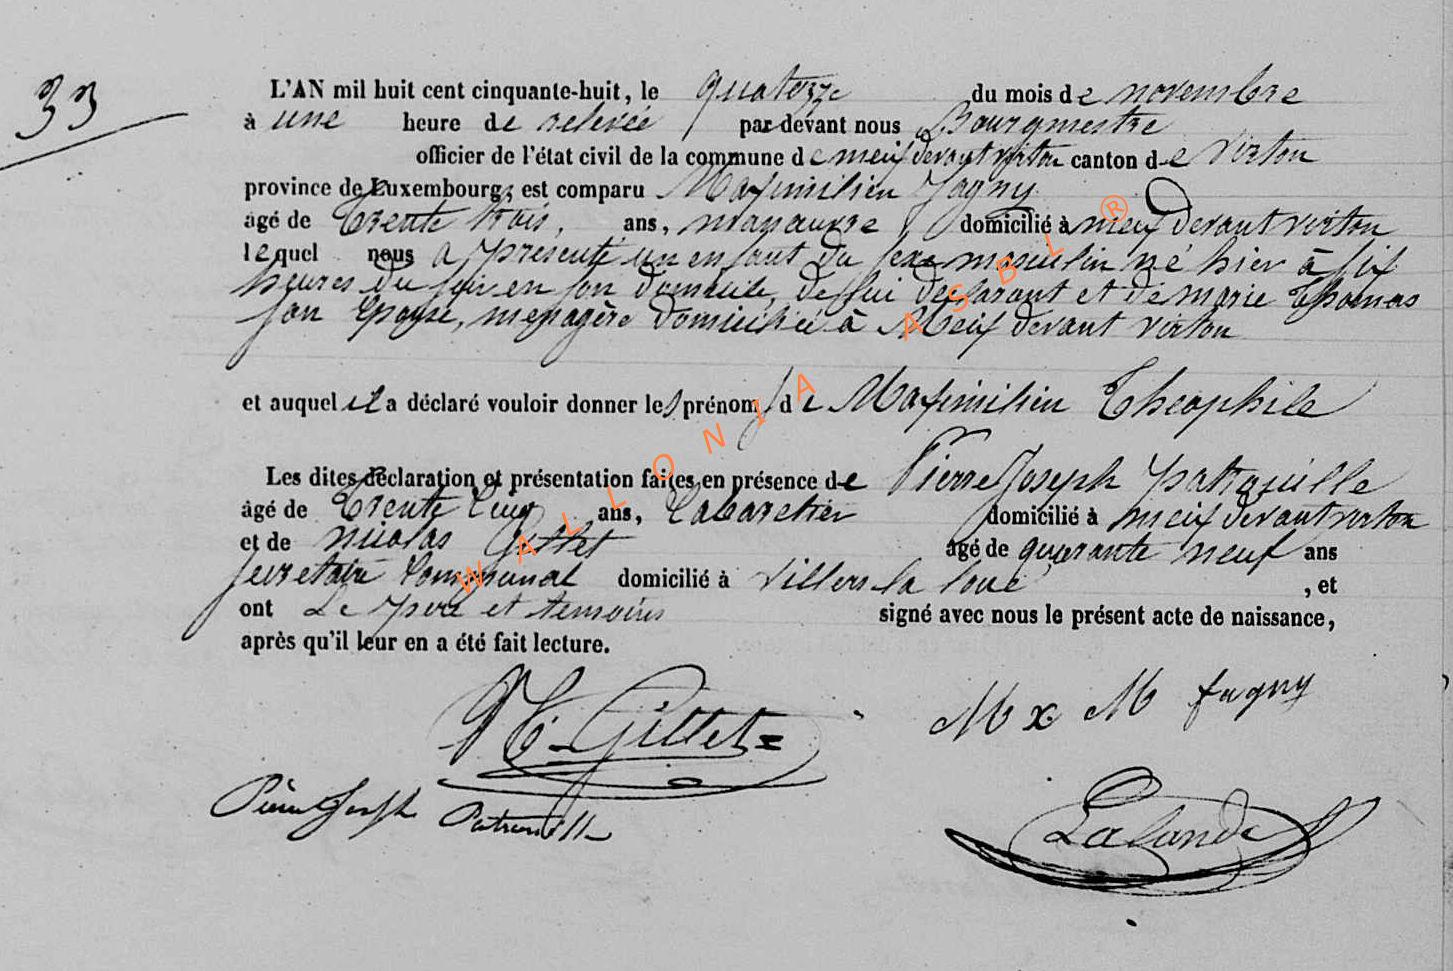 33
L'AN mil huit cent cinquante-huit, le quatorze du mois de novembre
à une heure de relevée par devant nous Bourgmestre
officier de l'état civil de la commune de meix devant virton canton de Virton
province de Luxembourg, est comparu Maximilien Fagny
âgé de trente trois, ans, manœuvre domicilié à meix devant virton
lequel nous a présenté un enfant du sexe masculin né hier à six
heures du soir en son domicile, de lui déclarant et de marie Thomas
son Epouse, menagère domiciliée à Meix devant virton
et auquel il a déclaré vouloir donner les prénoms de Maximilien Theophile
Les dites déclaration et présentation faites en présence de Pierre Joseph
âgé de trente cinq ans, Cabaretier domicilié à meix devant virton
et de nicolas Gillet âgé de quarante neuf ans
secretaire Communal domicilié à Villers la loue, et
ont Le père et temoins signé avec nous le présent acte de naissance,
après qu'il leur en a été fait lecture.
N. Gillet
M x M fagny
Pierre Joseph
Lalande
WALLONIA ASBL ®